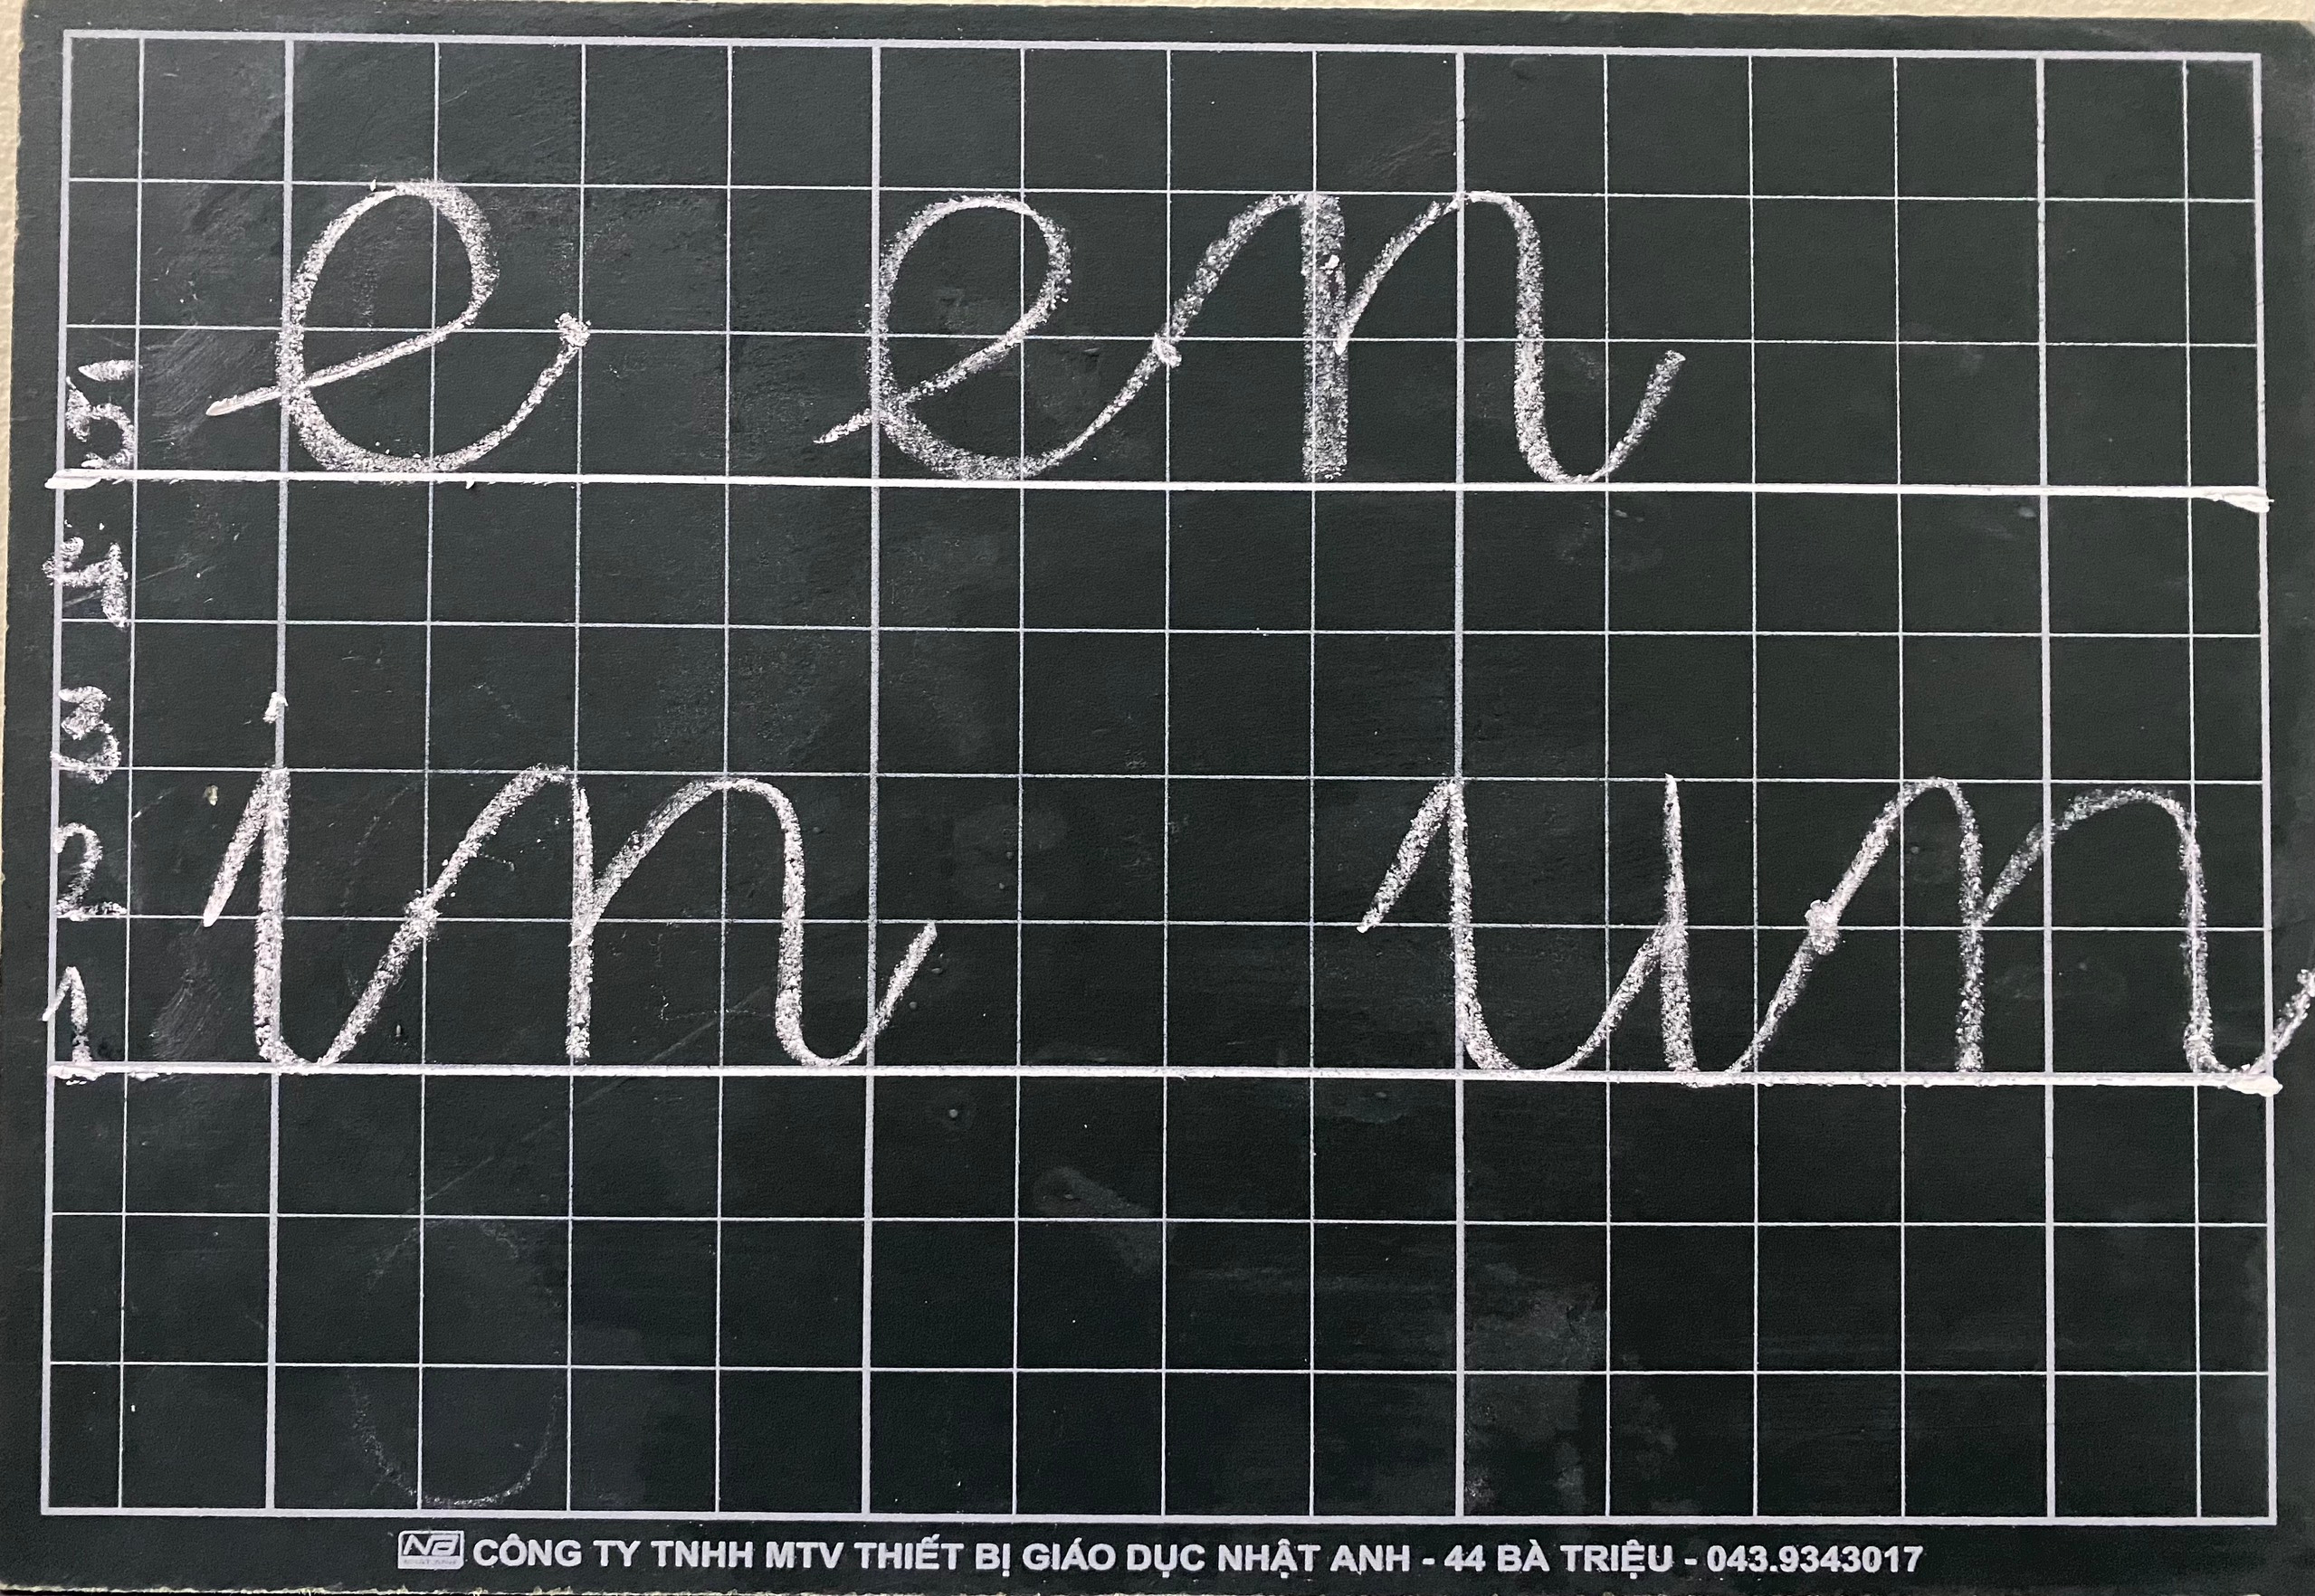 5 e en
4
3
2 in un
1
NA NHẬT ANH CÔNG TY TNHH MTV THIẾT BỊ GIÁO DỤC NHẬT ANH - 44 BÀ TRIỆU - 043.9343017